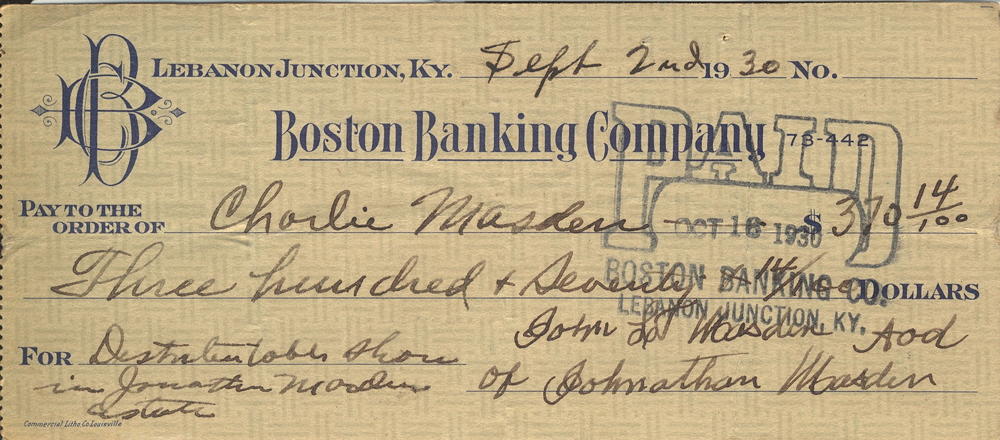 LEBANON JUNCTION, KY. Sept 2nd 1930 No.
Boston Banking Company 73-442
PAID
PAY TO THE ORDER OF Charlie Masden $370 14/100
OCT 16 1930
Three hundred & Seventy & 14/100 DOLLARS
BOSTON BANKING CO.
LEBANON JUNCTION, KY.
John Masden Aod
FOR share
of Johnathan Masden
in Jonathan Masden
estate
Commercial Litho. Co. Louisville